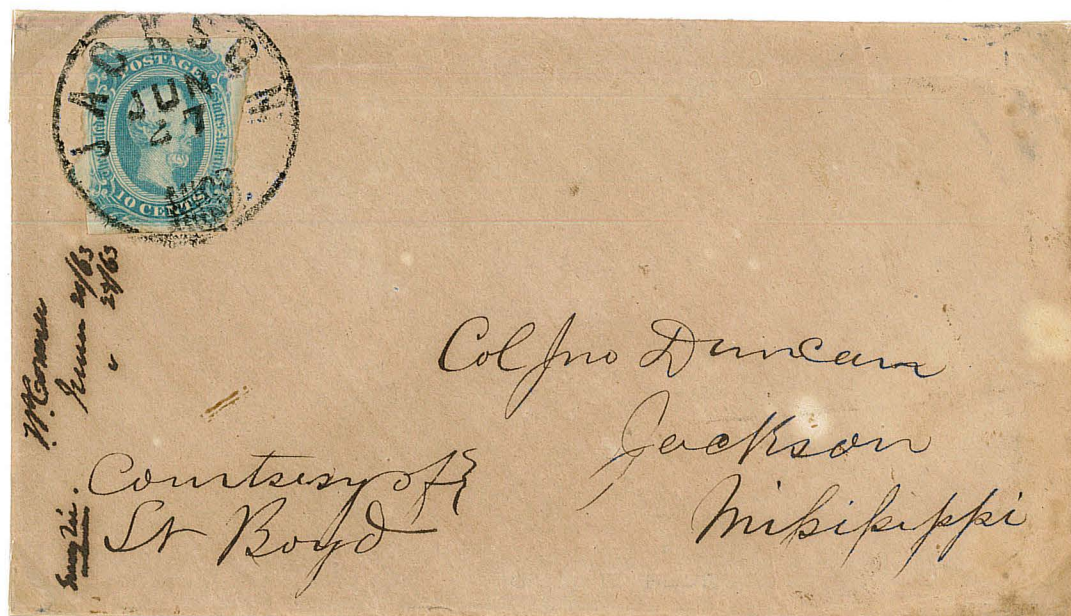 JACKSON
JUN
27
MISS
POSTAGE
10 CENTS
29/63
" 29/63
Col Jno Duncan
Jackson
Missisippi
Courtesy of
Lt Boyd